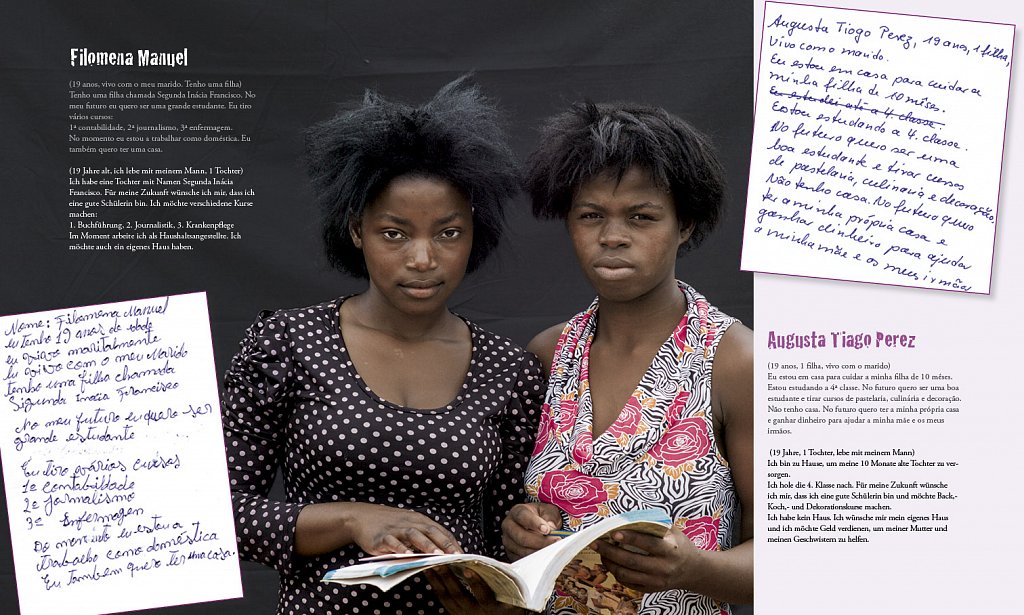 Filomena Manuel
(19 anos, vivo com o meu marido. Tenho uma filha)
Tenho uma filha chamada Segunda Inácia Francisco. No
meu futuro eu quero ser uma grande estudante. Eu tiro
vários cursos:
1ª contabilidade, 2ª journalismo, 3ª enfermagem.
No momento eu estou a trabalhar como doméstica. Eu
também quero ter uma casa.
(19 Jahre alt, ich lebe mit meinem Mann, 1 Tochter)
Ich habe eine Tochter mit Namen Segunda Inácia
Francisco. Für meine Zukunft wünsche ich mir, dass ich
eine gute Schülerin bin. Ich möchte verschiedene Kurse
machen:
1. Buchführung, 2. Journalistik, 3. Krankenpflege
Im Moment arbeite ich als Haushaltsangestellte. Ich
möchte auch ein eigenes Haus haben.
Nome: Filomena Manuel
eu tenho 19 anos de idade
eu vivo maritalmente
eu vivo com o meu Marido
tenho uma filha chamada
Sigunda Inácia Francisco
No meu futuro eu quero ser
grande estudante
Eu tiro vários cursos
1º contabilidade
2º jornalismo
3º Enfermagem
Do momento eu estou a
trabalho como doméstica
Eu também quero ter uma casa.
Augusta Tiago Perez, 19 anos, 1 filha,
Vivo com o marido.
Eu estou em casa para cuidar a
minha filha de 10 mêses.
Eu estudei até a 4. classe.
Estou estudando a 4. classe.
No futuro quero ser uma
boa estudante e tirar cursos
de pastelaria, culinaria e decoração
Não tenho casa. No futuro quero
ter a minha própria casa e
ganhar dinheiro para ajudar
a minha mãe e os meus irmãos
Augusta Tiago Perez
(19 anos, 1 filha, vivo com o marido)
Eu estou em casa para cuidar a minha filha de 10 mêses.
Estou estudando a 4ª classe. No futuro quero ser uma boa
estudante e tirar cursos de pastelaria, culinária e decoração.
Não tenho casa. No futuro quero ter a minha própria casa
e ganhar dinheiro para ajudar a minha mãe e os meus
irmãos.
(19 Jahre, 1 Tochter, lebe mit meinem Mann)
Ich bin zu Hause, um meine 10 Monate alte Tochter zu ver-
sorgen.
Ich hole die 4. Klasse nach. Für meine Zukunft wünsche
ich mir, dass ich eine gute Schülerin bin und möchte Back,-
Koch,- und Dekorationskurse machen.
Ich habe kein Haus. Ich wünsche mir mein eigenes Haus
und ich möchte Geld verdienen, um meiner Mutter und
meinen Geschwistern zu helfen.